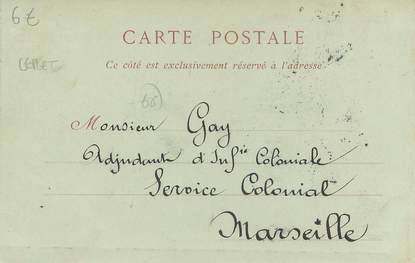 6€
CARTE POSTALE
Ce côté est exclusivement réservé à l'adresse
Monsieur Gay
Adjudant d'Inf<sup>ie</sup> Coloniale
Service Colonial
Marseille